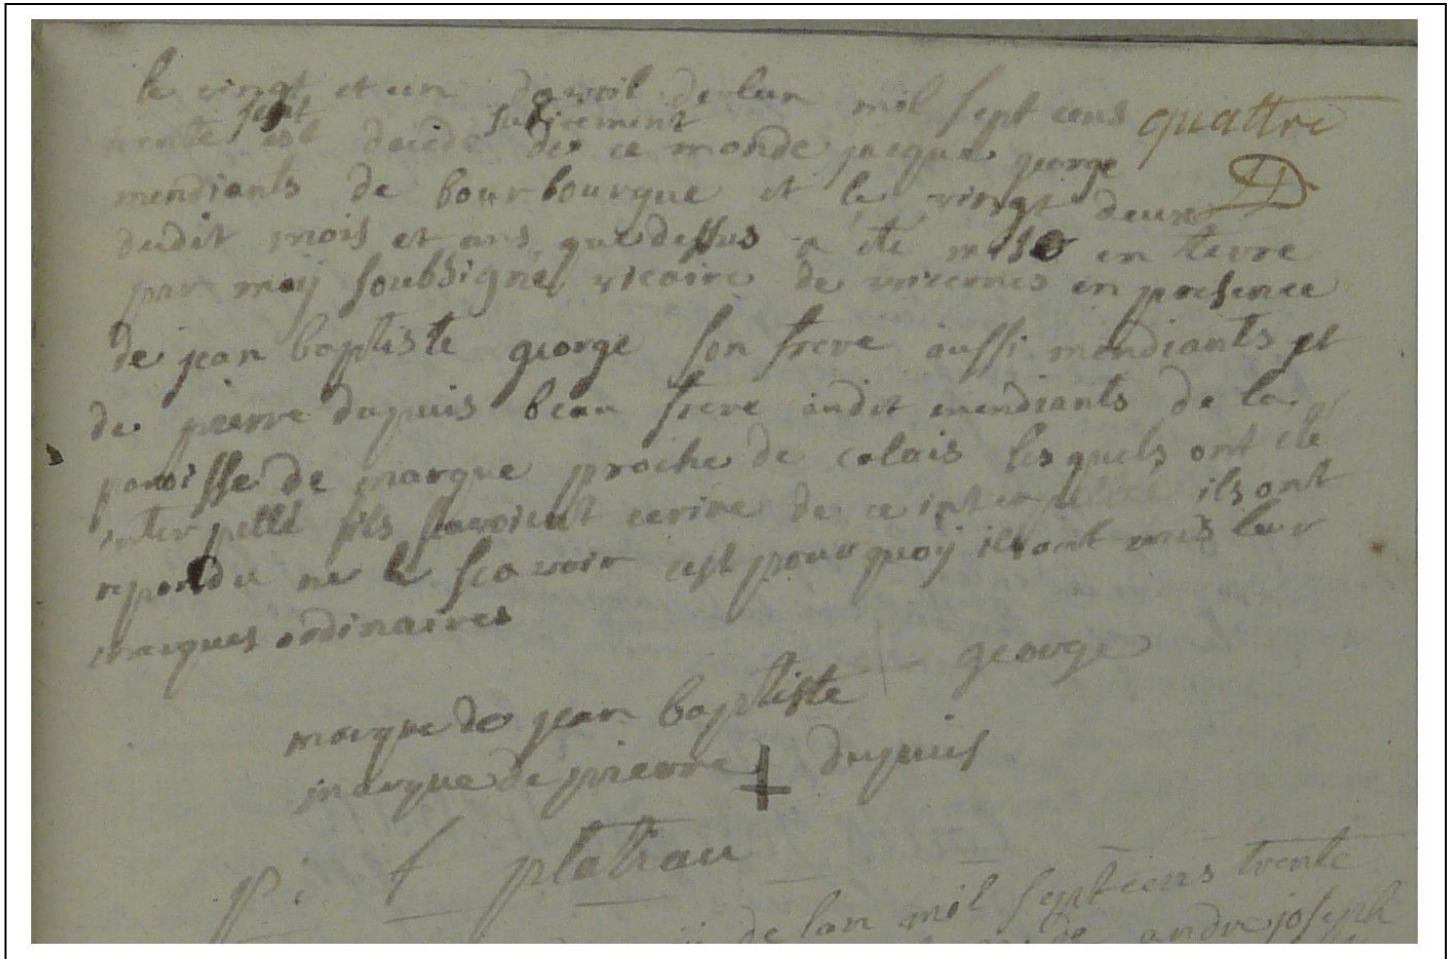 le vingt et un d'avril de lan mil sept cens quattre
trente sept est decedé subitement de ce monde jacque george
mendiants de bourbourgue et le vingt deux
dudit mois et ans que dessus a été mise en terre
par moÿ soubsigné vicaire de en presence
de jean baptiste george son frere aussi mendiants et
de pierre dupuis beau frere audit mendiants de la
paroisse de marque proche de calais lesquels ont été
interpellé sils scavoient ecrire de ce interpellée ils ont
repondu ne le scavoir cest pourquoÿ ils ont mis leur
marques ordinaires
marque de jean baptiste george
marque de pierre dupuis
p. f platiau
de lan mil sept cens trente
de andre joseph